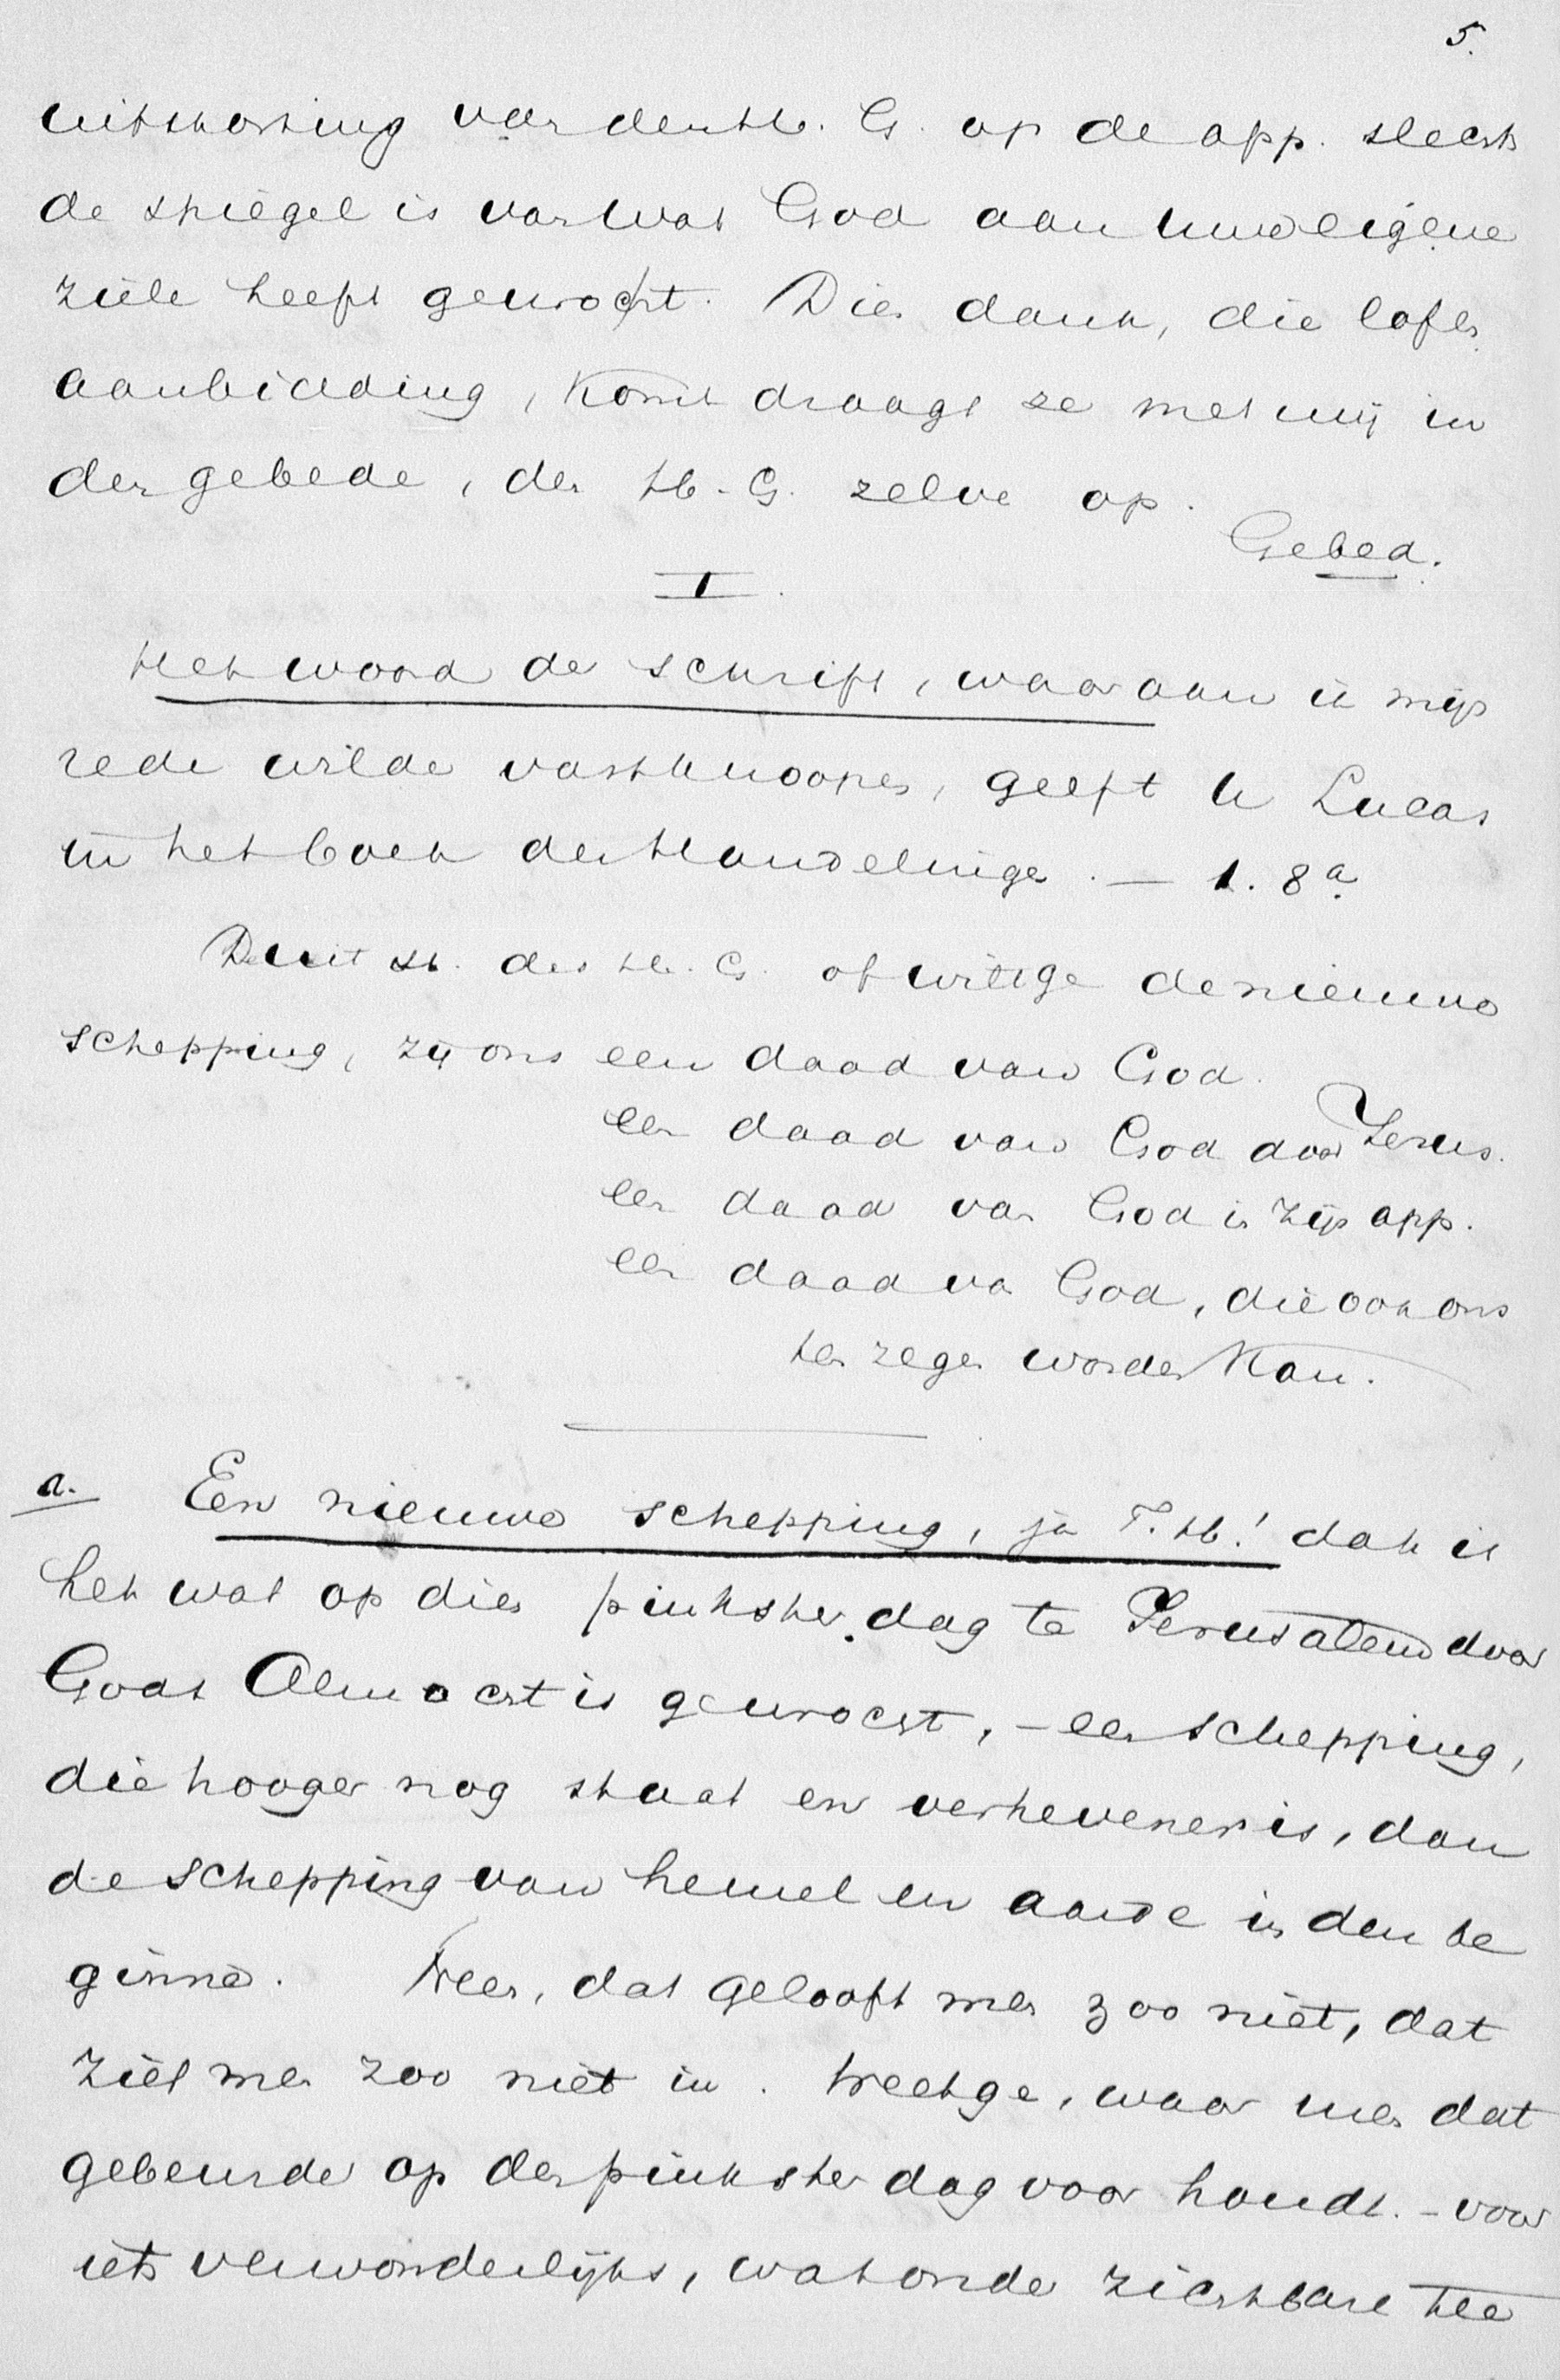 5.
uitstorting van den H. G. op de app. slechts
de spiegel is van wat God aan uwe eigene
ziele heeft gewrocht. Dien dank, die lof en
aanbidding, komt draagt ze met mij in
den gebede, den H. G. zelve op.
Gebed.
I.
Het woord der schrift, waaraan ik mijn
rede wilde vastknoopen, geeft U Lucas
in het boek der Handelingen. — 1. 8a.
De uitst. des H. G. of wilt ge de nieuwe
schepping, zij ons een daad van God.
een daad van God door Jezus.
een daad van God in zijn app.
een daad van God, die ook ons
ten zegen worden kan.
a. Een nieuwe schepping, ja T. H.! dat is
het wat op dien pinksterdag te Jerusalem door
Gods Almacht is gewrocht, – een schepping,
die hooger nog staat en verhevener is, dan
de schepping van hemel en aarde in den be
ginne. Neen, dat gelooft men zoo niet, dat
ziet men zoo niet in. Weet ge, waar men dat
gebeurde op den pinksterdag voor houdt. – voor
iets verwonderlijks, wat onder zichtbare tee